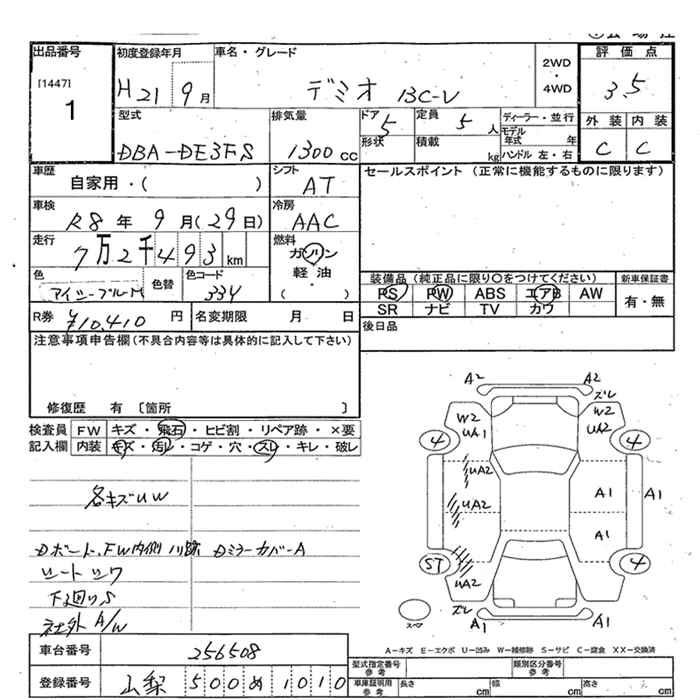 出品番号 初度登録年月 車名・グレード 2WD・4WD 評価点
[1447] 1 H21 9月 デミオ 13C-V 3.5
型式 排気量 ドア 5 定員 5人 ディーラー・並行 外装 内装
DBA-DE3FS 1300cc 形状 積載 kg モデル年式 年 ハンドル 左・右 C C
車歴 自家用・( ) シフト AT セールスポイント (正常に機能するものに限ります)
車検 R8年 9月(29日) 冷房 AAC
走行 7万2千493km 燃料 ガソリン
色 アイシーブルーM 色替 色コード 334 軽油・( )
装備品(純正品に限り○をつけてください) 新車保証書
PS PW ABS エアB AW 有・無
SR ナビ TV カワ
R券 ¥10,410円 名変期限 月 日 後日品
注意事項申告欄(不具合内容等は具体的に記入して下さい)
修復歴 有 〔箇所 〕
検査員 FW キズ・飛石・ヒビ割・リペア跡・×要
記入欄 内装 キズ・汚レ・コゲ・穴・スレ・キレ・破レ
各キズUW
Dボード、FW内側ハリ跡 DミラーカバーA
シートシワ
下廻りS
社外A/W
A2 A2
ズレ
W2 W2
UA1 UA2
4 4
UA2
A1 A1
UA2
A1
ST 4
UA2
ズレ
スペア A1 A1
A-キズ E-エクボ U-凹み W-補修跡 S-サビ C-腐食 XX-交換済
車台番号 256508
型式指定番号 参考 類別区分番号 参考
登録番号 山梨 500 め 1010
車庫証明用 参考 長さ cm 幅 cm 高さ cm